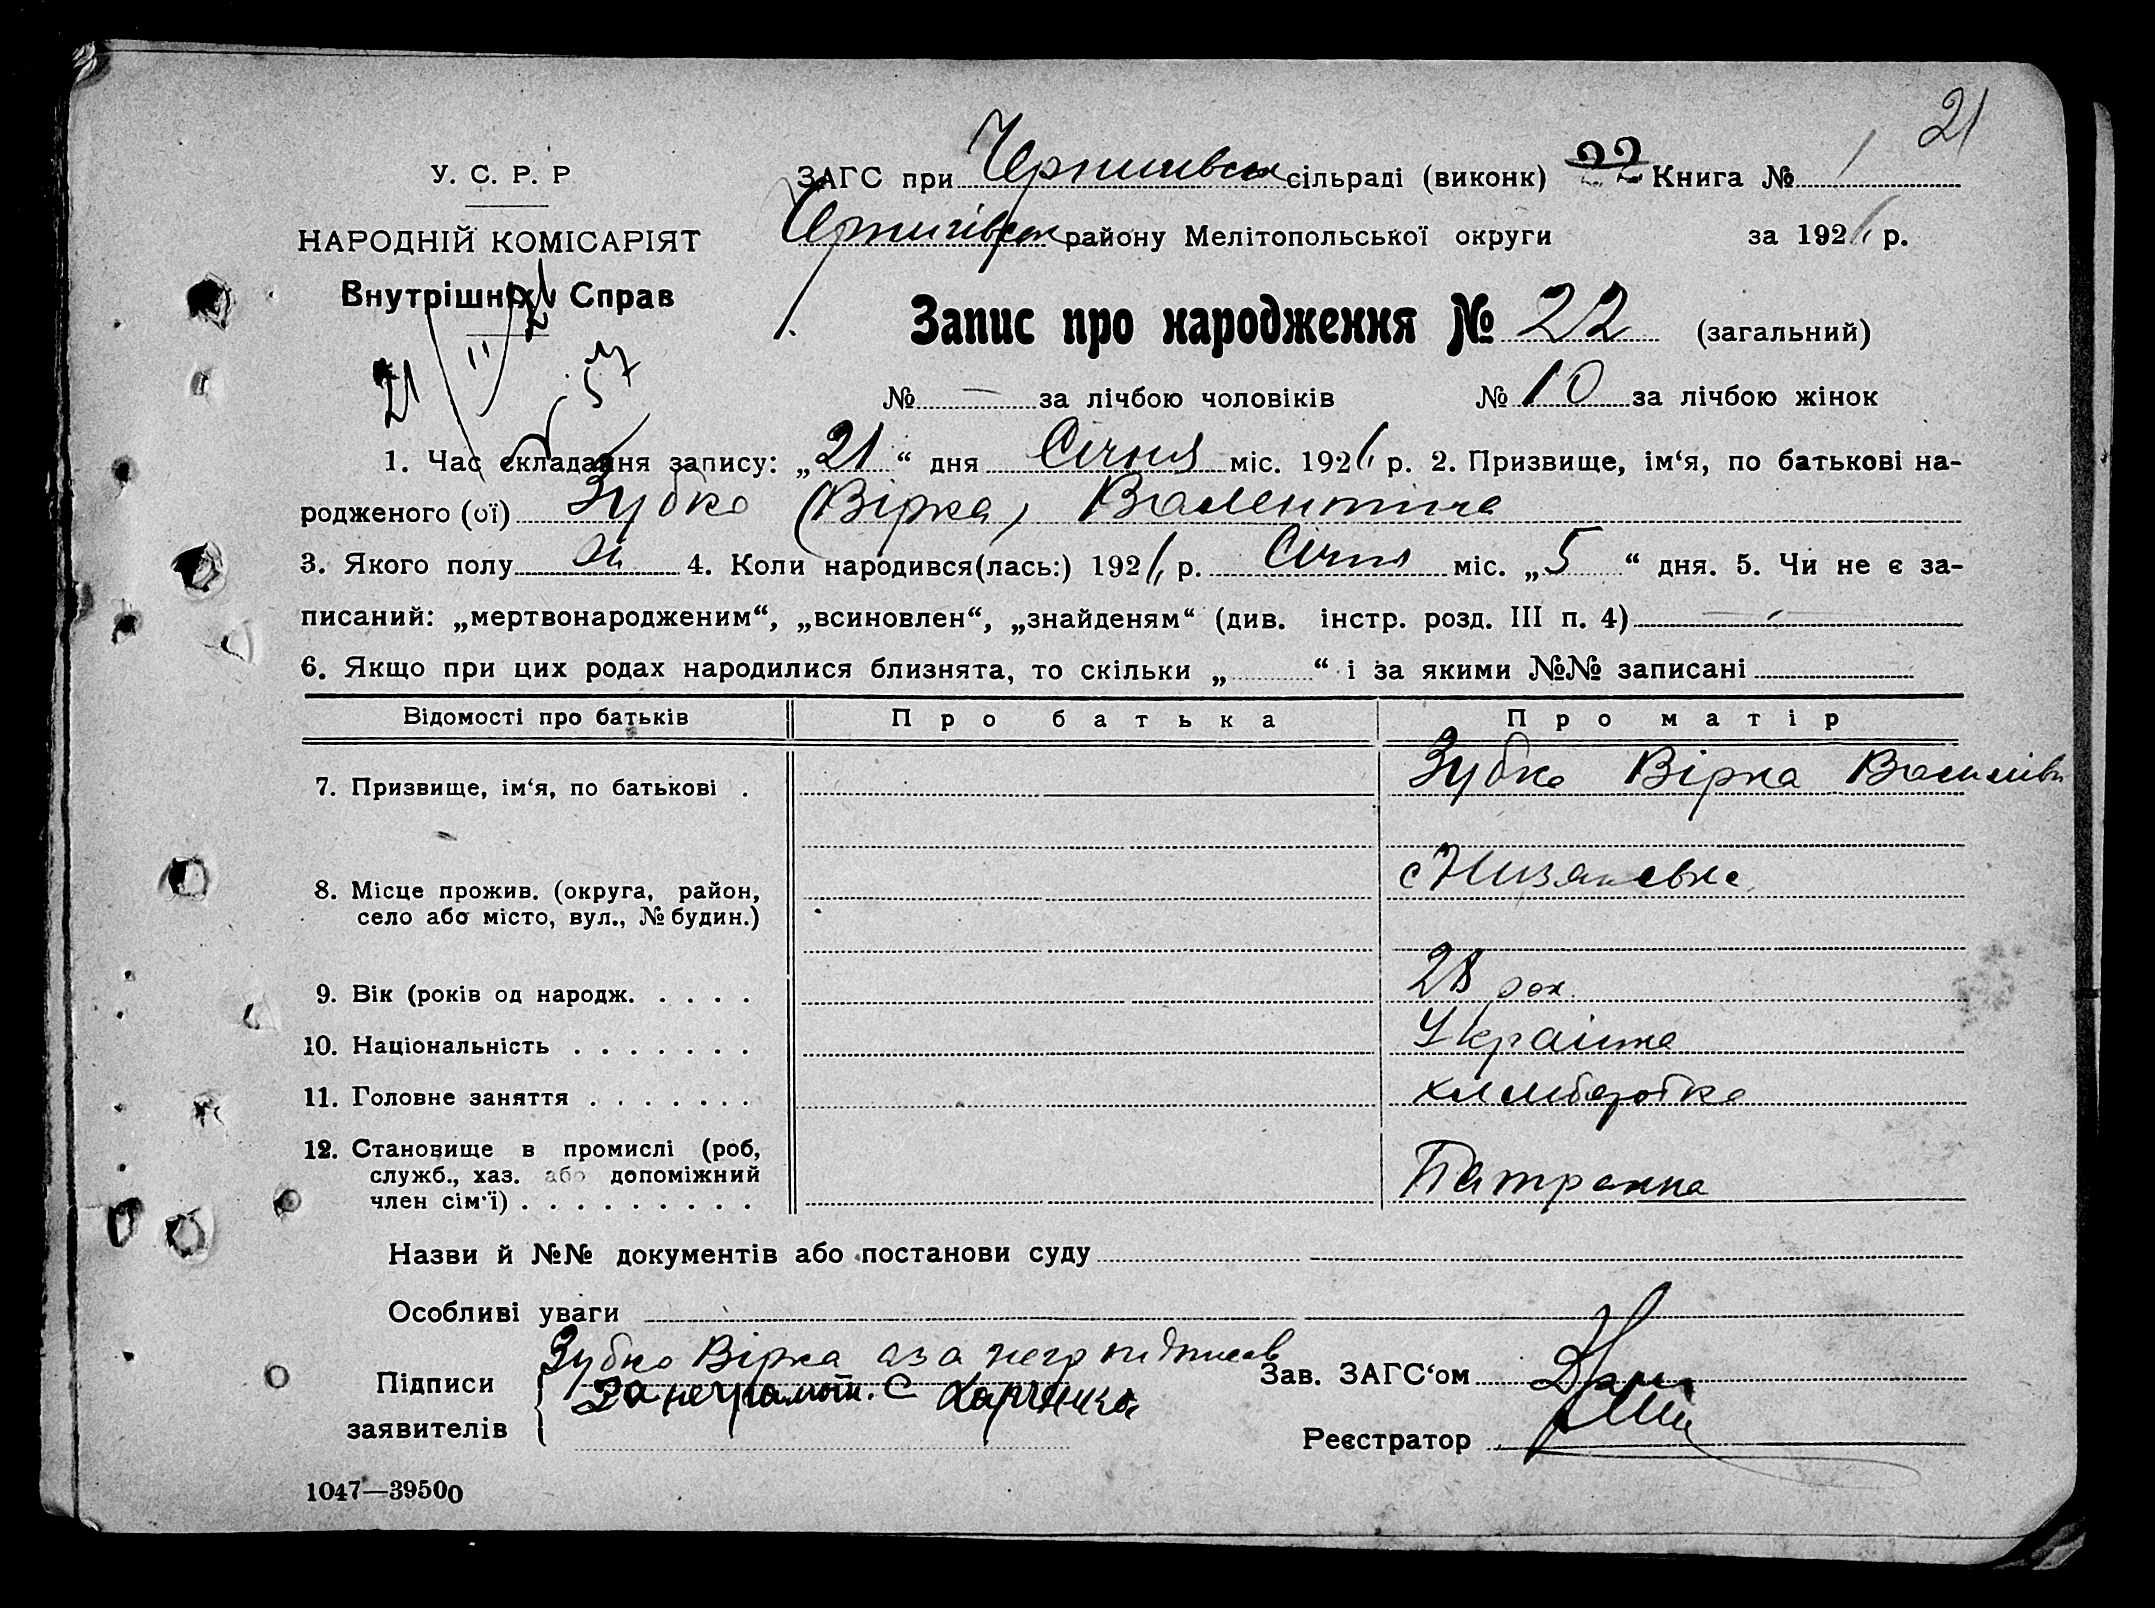 21
У. С. Р. Р
ЗАГС при сільраді (виконк) 22 Книга № 1
НАРОДНІЙ КОМІСАРІЯТ
району Мелітопольської округи за 192 р.
Внутрішніх Справ
Запис про народження № 22 (загальний)
21
№ — за лічбою чоловіків № 10 за лічбою жінок
1. Час складання запису: „21“ дня Січня міс. 192 р. 2. Призвище, ім‘я, по батькові на-
родженого (ої) Зубко (Вірка) Валентина
3. Якого полу 4. Коли народився(лась:) 192 р. Січня міс. „5“ дня. 5. Чи не є за-
писаний: „мертвонародженим“, „всиновлен“, „знайденям“ (див. інстр. розд. III п. 4) —
6. Якщо при цих родах народилися близнята, то скільки „ “ і за якими №№ записані
Відомості про батьків Про батька Про матір
7. Призвище, ім‘я, по батькові . Зубко Вірка
8. Місце прожив. (округа, район,
село або місто, вул., № будин.)
9. Вік (років од народж. . . . . 28 рок
10. Національність . . . . . . . Українка
11. Головне заняття . . . . . . .
12. Становище в промислі (роб,
служб., хаз. або допоміжний
член сім‘ї) . . . . . . . . .
Назви й №№ документів або постанови суду
Особливі уваги
Зубко Вірка а за негр підписав
Підписи За неграмотн. С Харченко
заявителів
Зав. ЗАГС‘ом
Реєстратор
1047—39500